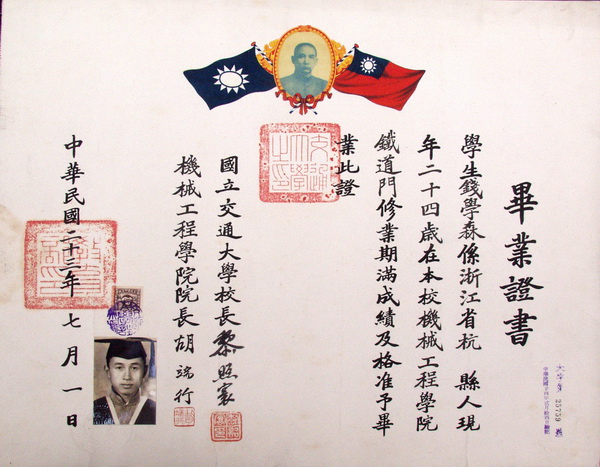 畢業證書
學生錢學森係浙江省杭 縣人現
年二十四歲在本校機械工程學院
鐵道門修業期滿成績及格准予畢
業此證
國立交通大學校長黎照寰
機械工程學院院長胡端行
中華民國二十三年七月一日